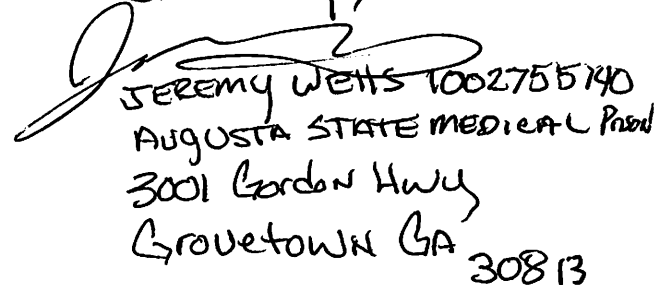 JEREMY WELLS 1002755740
AUGUSTA STATE MEDICAL Prison
3001 Gordon Hwy
Grovetown GA
30813